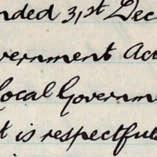 nded 31st Dec
vernment Act
Local Governm
t is respectfull